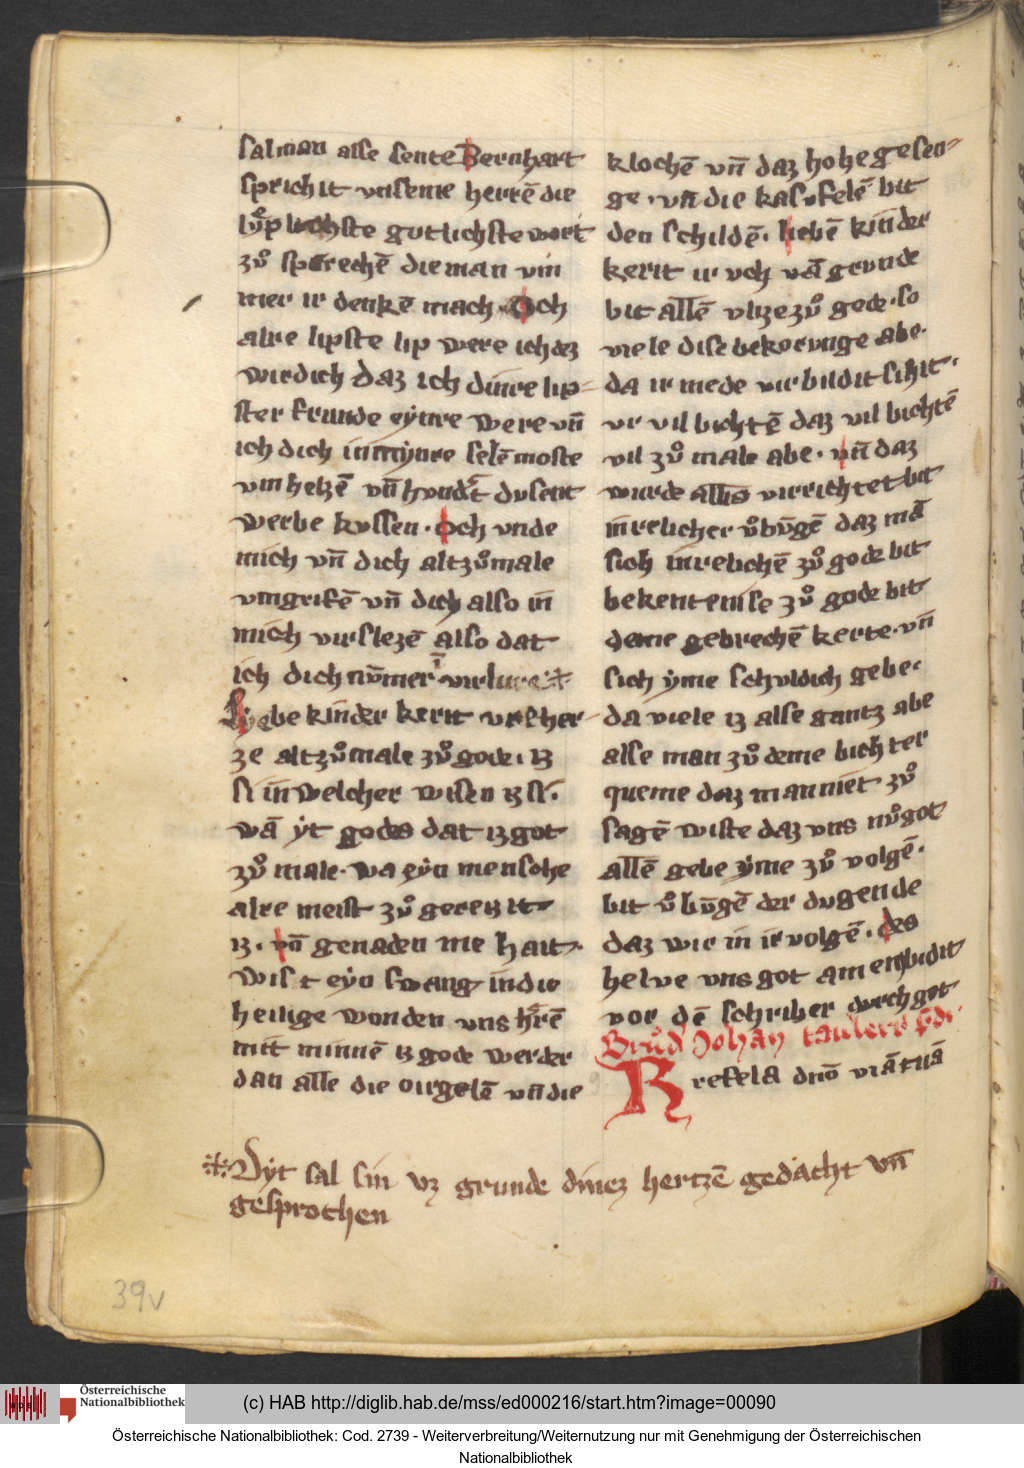 salman alse sente Bernhart
sprichit vnseme herrē die
lvͦplichste gutlichste wort
zvͦ sprechē die man vm
mer ir denkē mach · Och
alre lipste lip were ich dez
wirdich daz ich dinre lip-
ster frunde eynre were vn̄
ich dich in mynre selē moste
vmhelzē vn̄ hvndͤt dusent
werbe kvssen · Och vnde
mich vn̄ dich altzvͦmale
vmgrifē vn̄ dich also in
mich virslezē also dat
ich dich nv̄mer virlure ·
Liebe kinder kerit vr her-
ze altzvͦmale zvͦ gode · iz
si in welcher wisen iz si ·
wā yt godes dat iz got
zvͦ male · wa eyn mensche
alre meist zvͦ gereizit
iz · vn̄ genaden me hait ·
wist eyn swang in die
heilige wonden vns hͤrē
mit minnē iz gode werder
dan alle die oirgelē vn̄ die
klochē vn̄ daz hohe gesen-
ge · vn̄ die kasufelē bit
den schildē · liebē kinder
kerit ir vch vā grvnde
bit allē vlize zvͦ gode · so
viele dise bekorvnge abe ·
da ir mede virbildit sihit ·
vr vil bichtē daz vil bichtē
vil zvͦ male abe · vn̄ daz
wurde allis virrichtet bit
inrelicher vͦbv̄gē daz mā
sich inrelichē zvͦ gode bit
bekentenise zvͦ gode bit
deme gebrechē kerte · vn̄
sich yme schvldich gebe ·
da viele iz alse gantz abe
alse man zvͦ deme bichter
queme daz man niet zvͦ
sagē wiste daz vns nvͦ got
allē gebe yme zvͦ volgē ·
bit vͦbv̄gē der dugende
daz wir in ir volgē · des
helve vns got amen bidit
vor dē schriber durch got
Brud Johan taulers
Refela dn̄o viā tuā
Dyt sal sin vz grunde dinez hertzē gedacht vn̄
gesprochen
39v
Österreichische
Nationalbibliothek
(c) HAB http://diglib.hab.de/mss/ed000216/start.htm?image=00090
Österreichische Nationalbibliothek: Cod. 2739 - Weiterverbreitung/Weiternutzung nur mit Genehmigung der Österreichischen
Nationalbibliothek